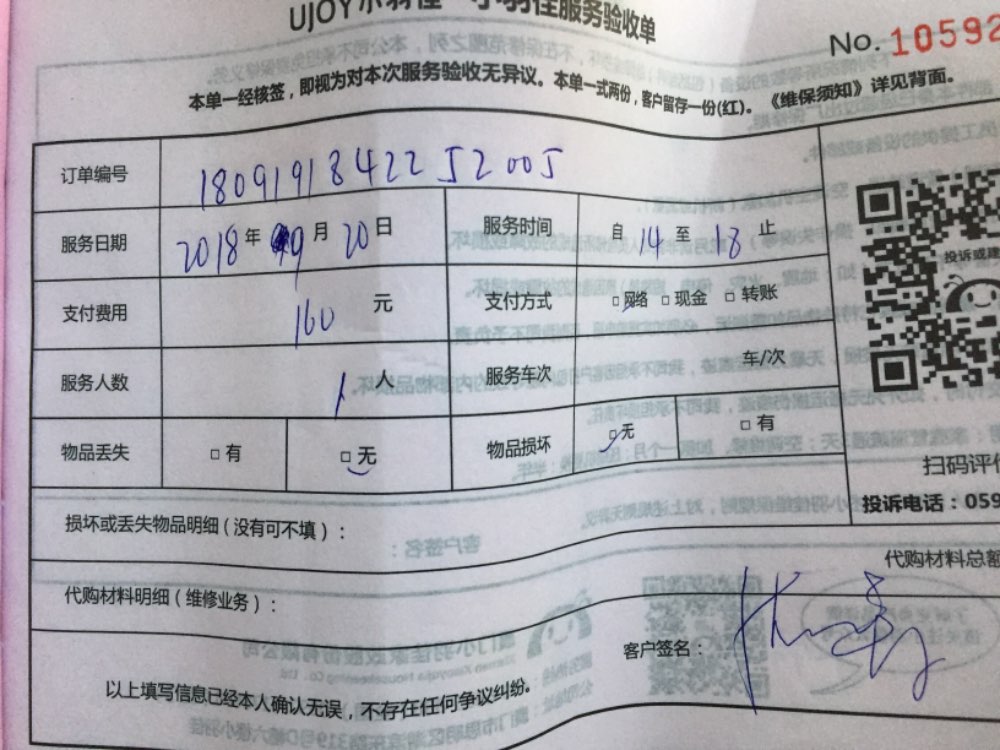 UJOY小羽佳 小羽佳服务验收单
No. 10592
本单一经核签，即视为对本次服务验收无异议。本单一式两份，客户留存一份(红)。《维保须知》详见背面。
订单编号 1809191842252005
服务日期 2018年 9月 20日 服务时间 自 14 至 18 止
支付费用 160 元 支付方式 □网络 □现金 □转账
服务人数 1 人 服务车次 车/次
物品丢失 □有 □无 物品损坏 □无 □有
投诉或建
扫码评价
投诉电话：059
损坏或丢失物品明细（没有可不填）：
代购材料总额
代购材料明细（维修业务）：
客户签名：
以上填写信息已经本人确认无误，不存在任何争议纠纷。